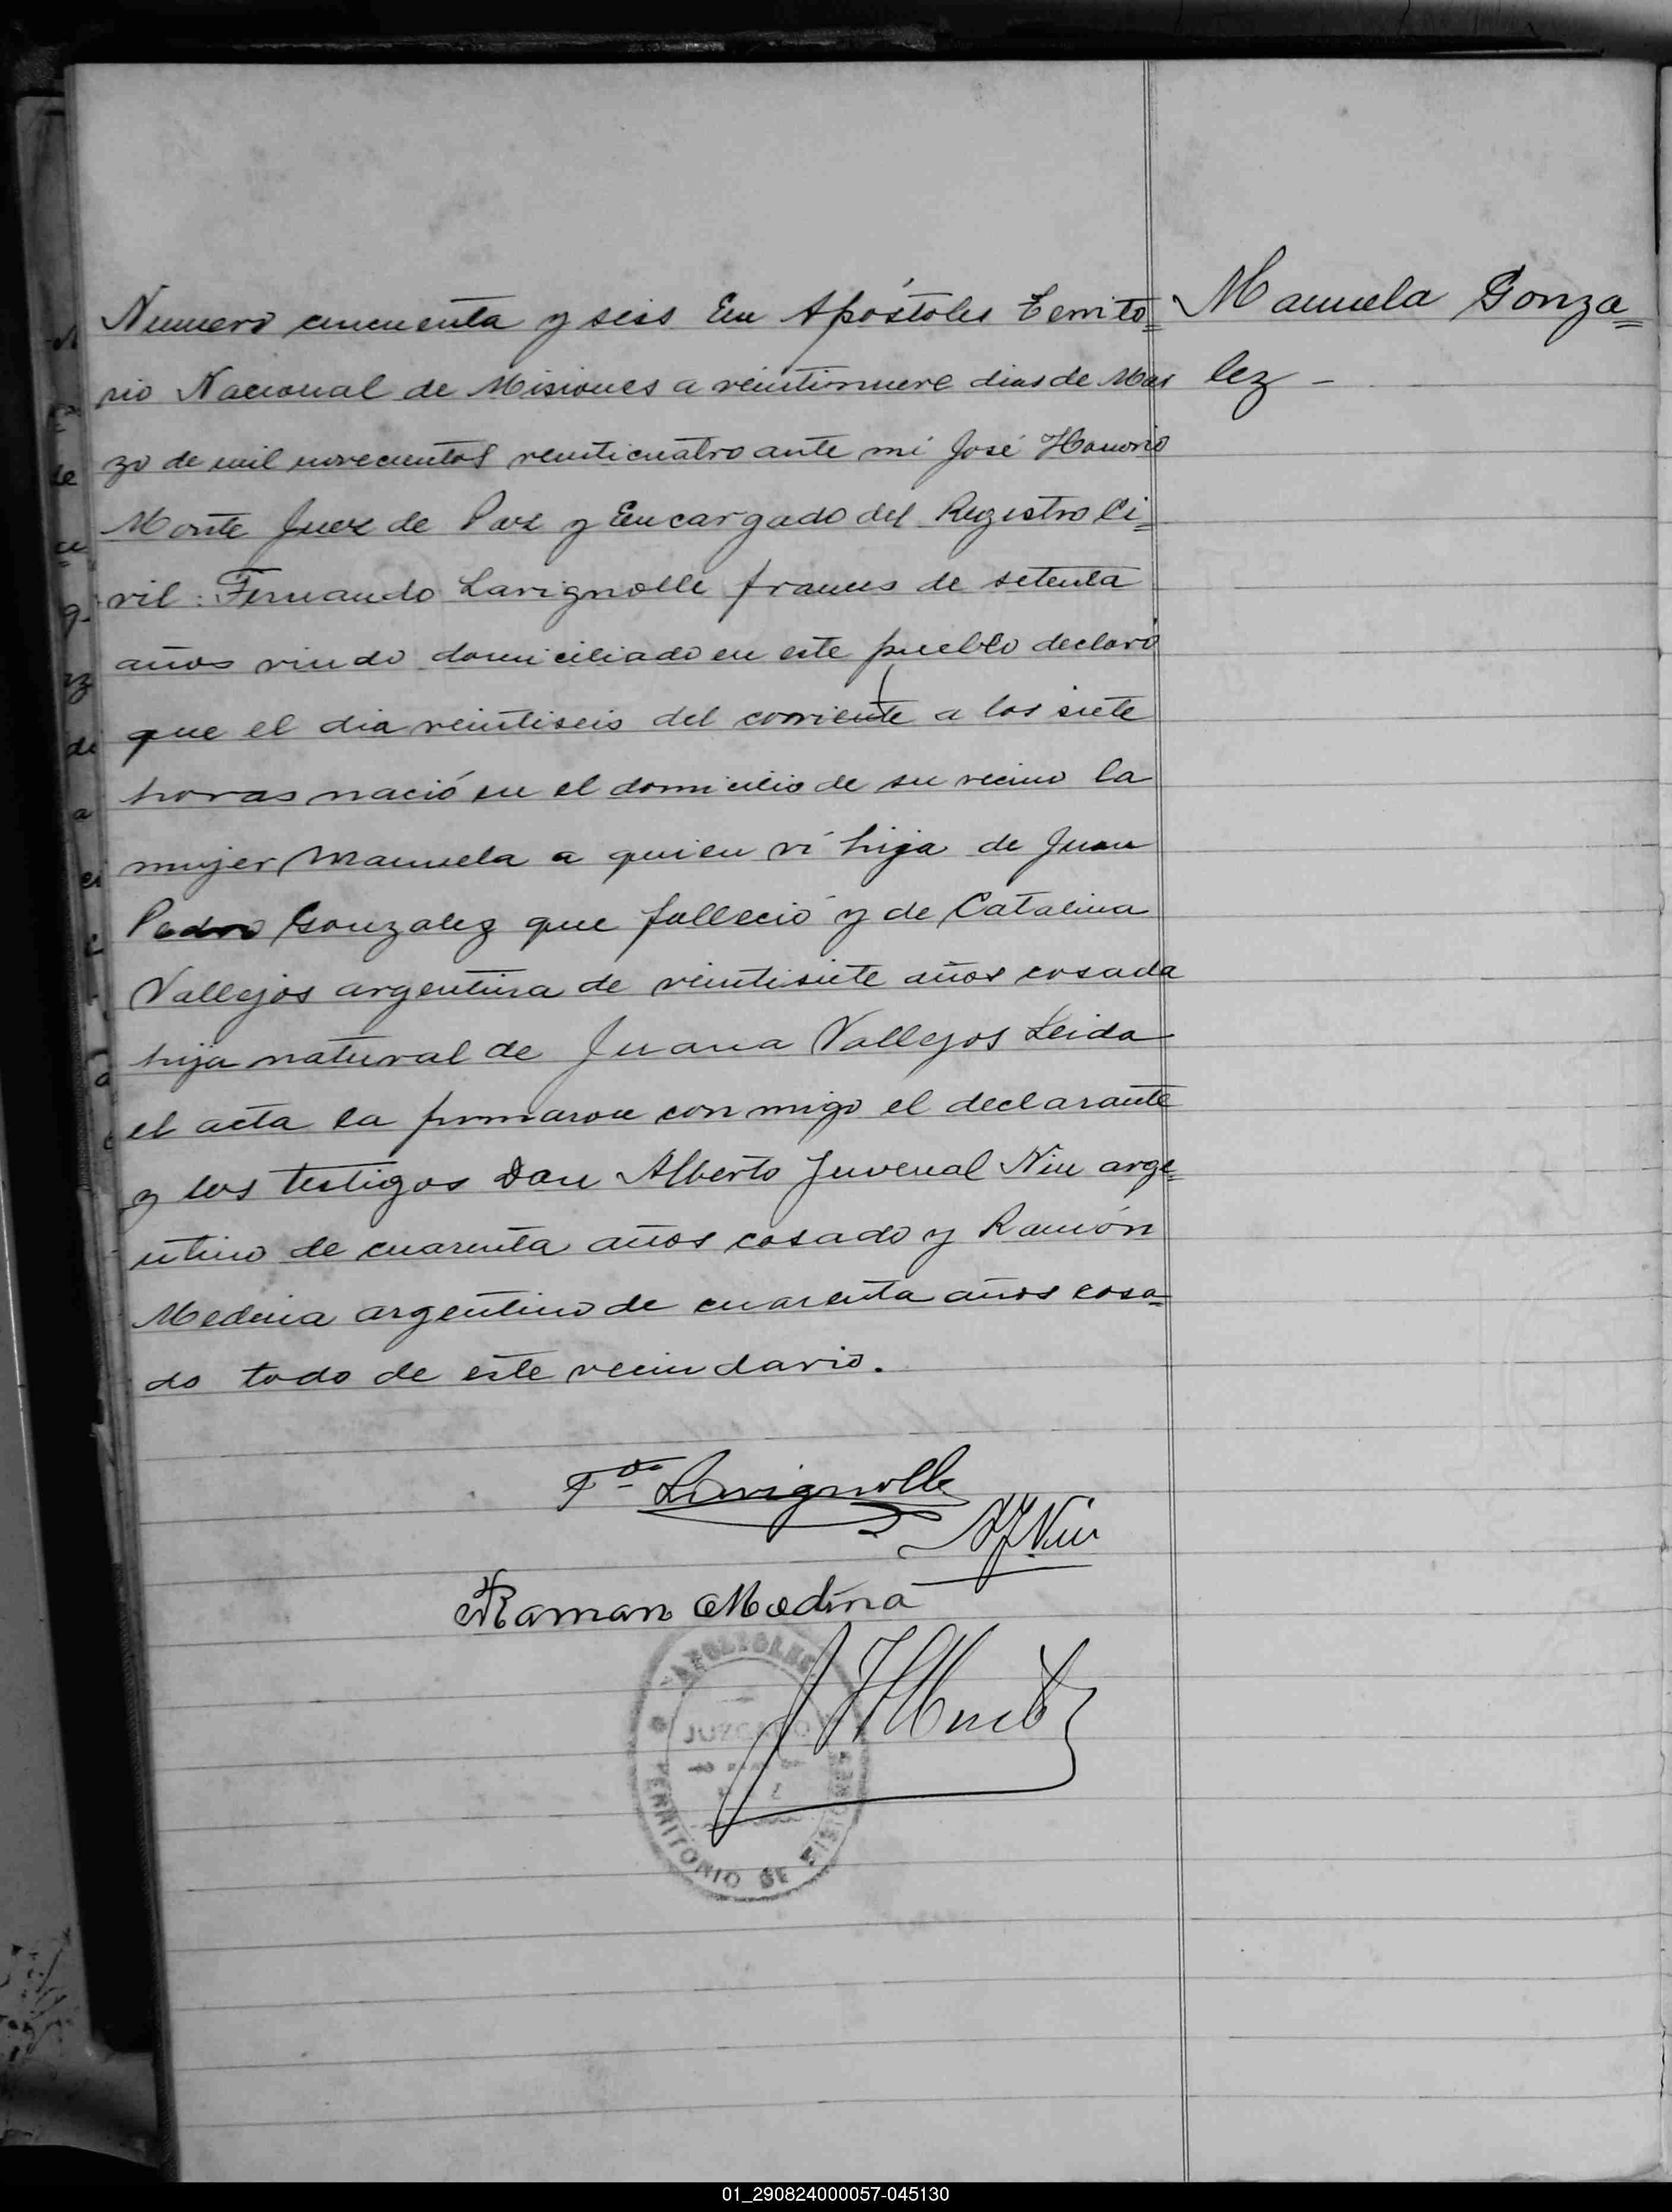 Numero cincuenta y seis En Apóstoles Territo=
rio Nacional de Misiones a veintinueve dias de Mar
zo de mil novecientos veinticuatro ante mi José Honorio
Monte Juez de Paz y Encargado del Registro Ci=
vil: Fernando Lavignolle frances de setenta
años viudo domiciliado en este pueblo declaró
que el dia veintiseis del corriente a las siete
horas nació en el domicilio de su vecino la
mujer Manuela a quien vi hija de Juan
Pedro Gonzalez que falleció y de Catalina
Vallejos argentina de veintisiete años casada
hija natural de Juana Vallejos Leida
el acta la firmaron conmigo el declarante
y los testigos Don Alberto Juvenal Niu arge=
ntino de cuarenta años casado y Ramón
Medina argentino de cuarenta años casa=
do todo de este vecindario.
Manuela Gonza=
lez -
Fdo Lavignolle
AJNiu
Raman Medina
APOSTOLES
JUZGADO
TERRITORIO DE MISIONES
01_290824000057-045130